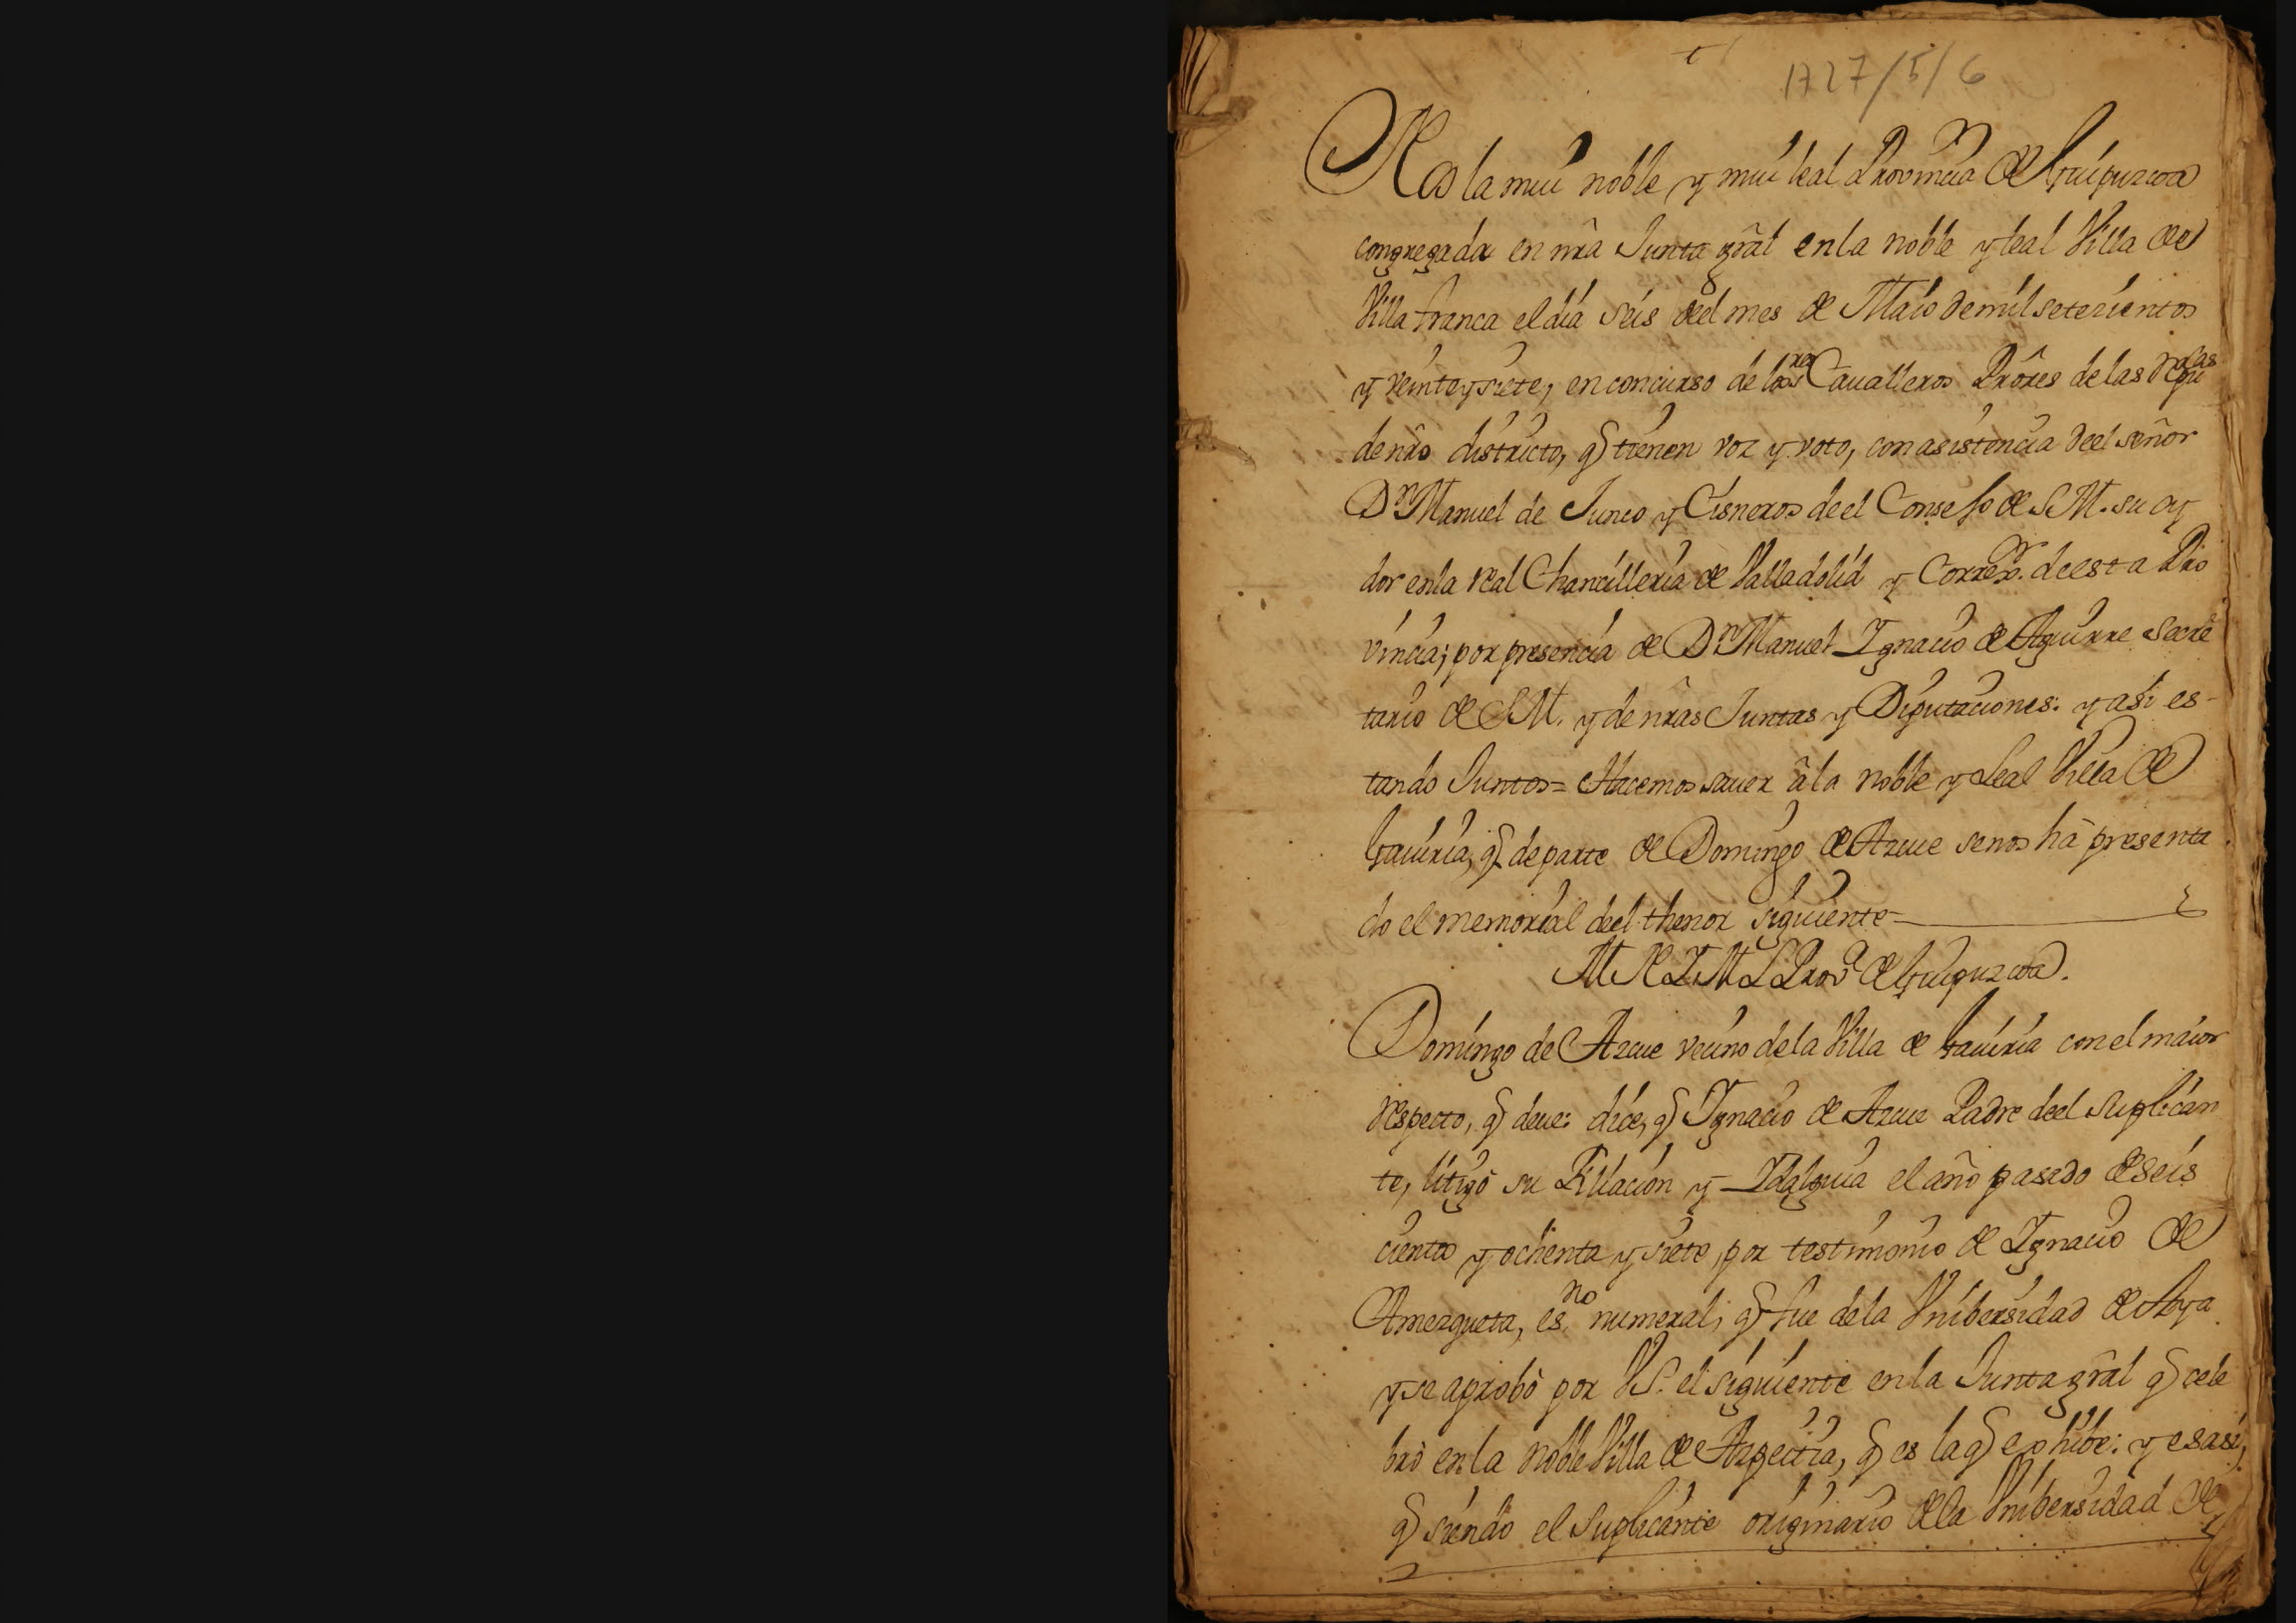 1727/5/6
Nos la mui noble y mui leal Provincia de Guipuzcoa
congregada en nra Junta gral en la noble y leal Villa de
Villafranca el dia seis deel mes de Maio de mil setecientos
y veinte y siete, en concurso de los Caualleros Prôres de las Repucas
de nro districto, q tienen voz y voto, con asistencia deel señor
Dn Manuel de Junco y Cisneros de el Consejo de S.M. su oy
dor en la real Chancilleria de Valladolid y Correxor. de esta Pro
vincia; por presencia de Dn Manuel Ignacio de Aguirre Secre
tario de S.M. y de nras Juntas y Diputaciones: y asi es-
tando Juntos= Hacemos sauer â la noble y Leal Villa de
Gauiria, q de parte de Domingo de Azcue se nos hà presenta
do el memorial deel thenor siguiente
M N I M L Prova de Guipuzcoa.
Domingo de Azcue vecino de la Villa de Gauiria con el maior
respecto, q deue: dice, q Ignacio de Azcue Padre deel Suplican
te, litigò su Filiacion y Idalguia el año pasado de seis
cientos y ochenta y siete, por testimonio de Ignacio de
Amezqueta, esno numeral, q fue de la Vnibersidad de Aya
y se aprobò por VS. el siguiente en la Junta gral q cele
brò en la noble Villa de Azpeitia, q es la q exhibe: y es asi,
q siendo el Suplicante originario de la Vnibersidad de